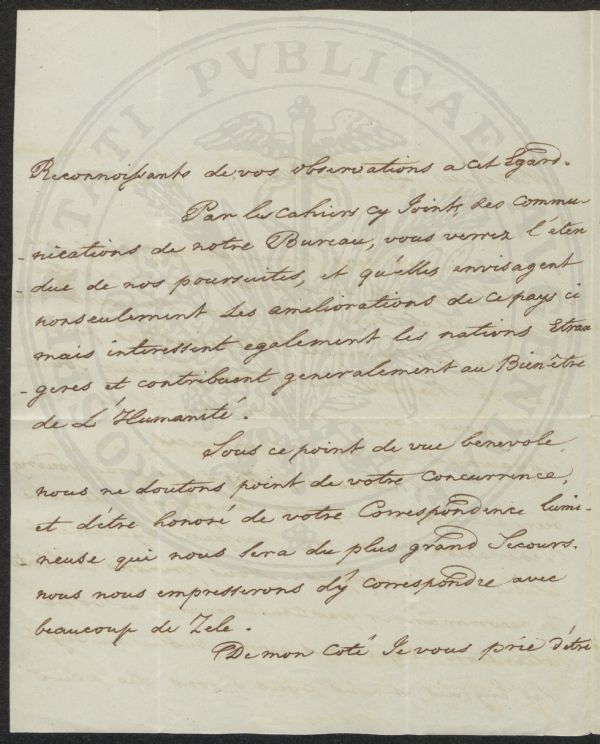 Reconnoissants de vos observations a cet Egard.
Par les Cahiers cy Joint, des commu-
-nications de notre Bureau, vous verrez l'éten
-due de nos poursuites, et qu'elles envisagent
nonseulement les ameliorations de ce pays ci
mais interessent egalement les nations Etran
-geres et contribuent generalement au Bienêtre
de L'Humanité.
Sous ce point de vue benevole,
nous ne doutons point de votre Concurrence,
et d'être honoré de votre Correspondence lumi-
-neuse qui nous sera du plus grand Secours.
nous nous empresserons d'y correspondre avec
beaucoup de Zele.
De mon Coté Je vous prie d'être